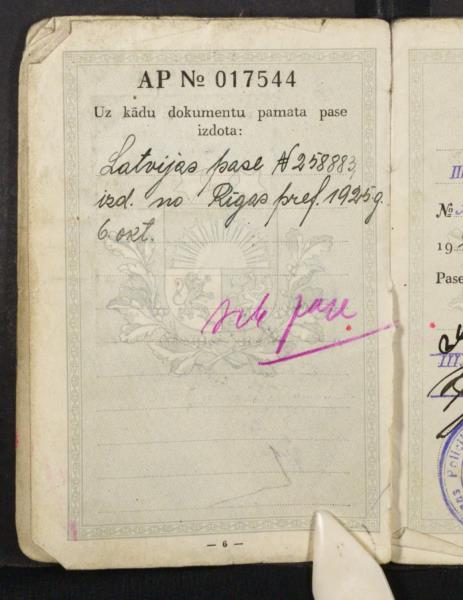 AP № 017544
Uz kādu dokumentu pamata pase
izdota:
Latvijas pase № 258883,
izd. no Rīgas pref. 1925 g.
6. okt.
pase
— 6 —
III
№
19
Pase
III